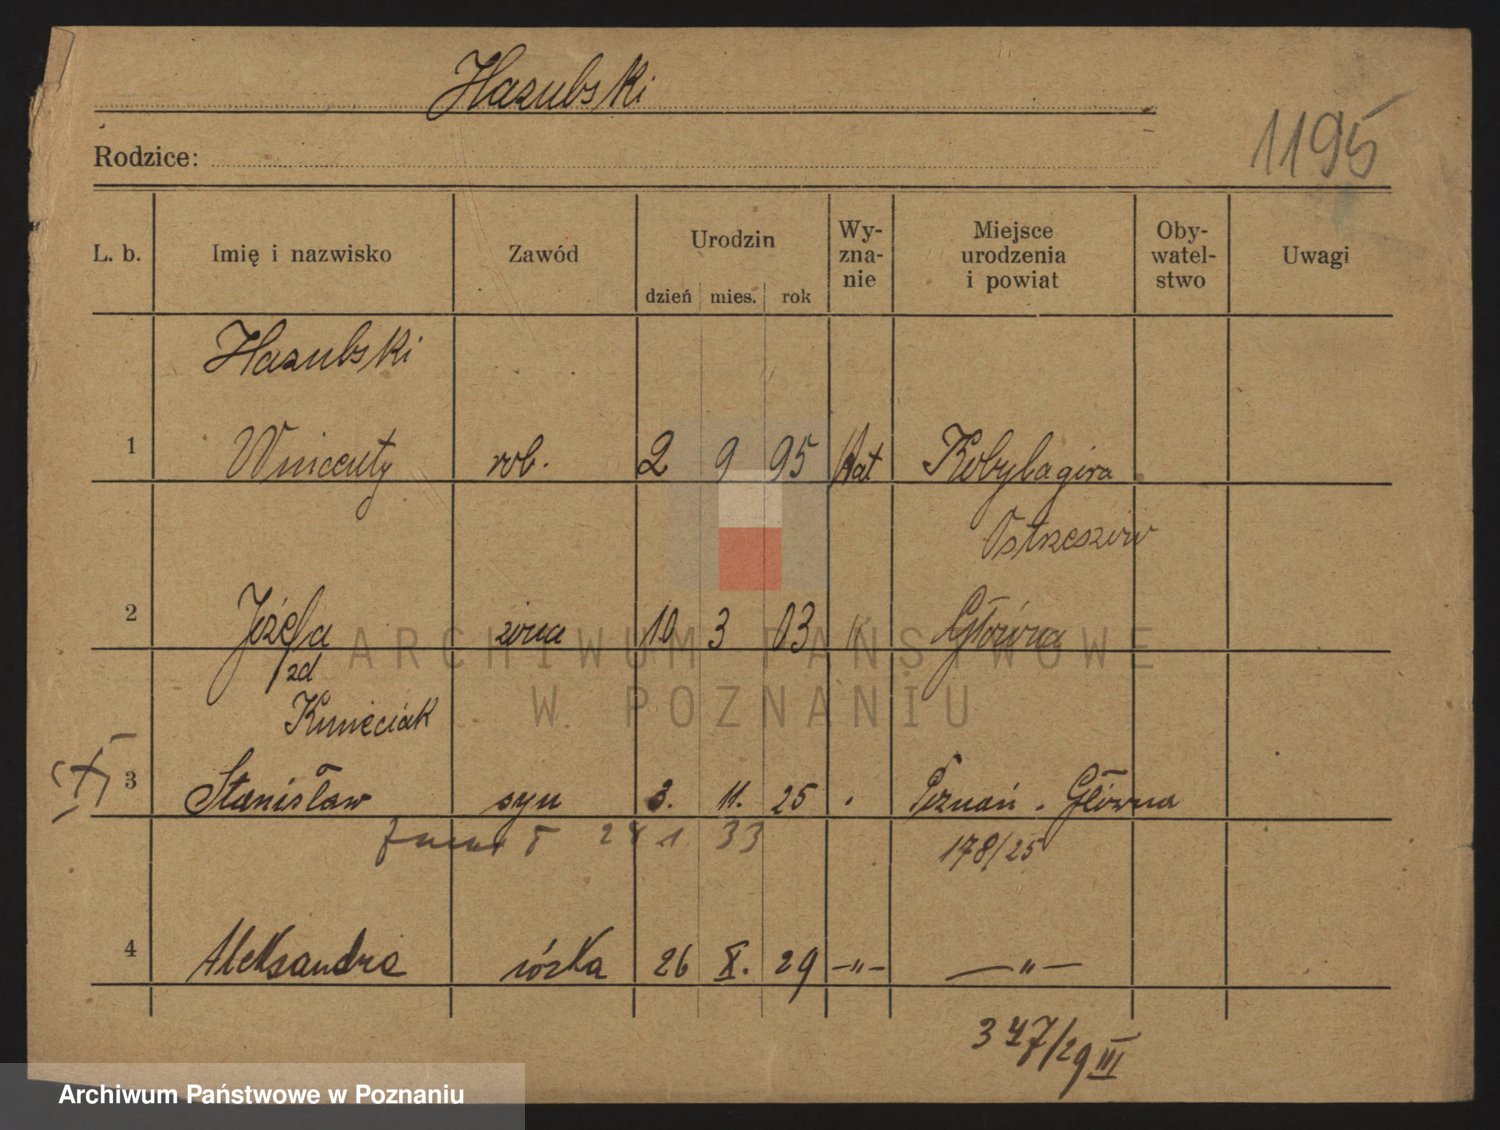 Hazubski
1195
Rodzice:
L. b. Imię i nazwisko Zawód Urodzin dzień mies. rok Wy-zna-nie Miejsce urodzenia i powiat Oby-watel-stwo Uwagi
Hazubski
1 Wincenty rob. 2 9 95 Kat Kobylagóra
Ostrzeszów
2 Józefa żona 10 3 03 " Główna
zd
Kmieciak
3 Stanisław syn 3. 11. 25 Poznań - Główna
24 1 33 178/25
4 Aleksandra córka 26 X. 29 —"— —"—
347/29 III
ARCHIWUM PAŃSTWOWE
W POZNANIU
Archiwum Państwowe w Poznaniu